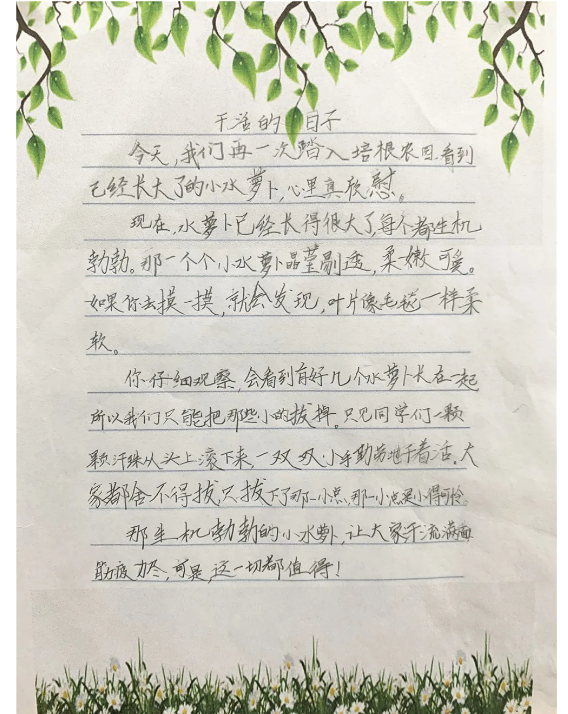 干活的日子
今天,我们再一次踏入培根农田.看到
己经长大了的小水萝卜,心里真欣慰。
现在,水萝卜已经长得很大了,每个都生机
勃勃。那一个个小水萝卜晶莹剔透,柔嫩可爱。
如果你去摸一摸,就会发现,叶片像毛毯一样柔
软。
你仔细观察,会看到有好几个水萝卜长在一起
所以我们只能把那些小的拔掉。只见同学们一颗
颗汗珠从头上滚下来,一双双小手勤劳地干着活。大
家都舍不得拔,只拔下了那一小点,那一小点是小得可怜。
那生机勃勃的小水萝卜,让大家汗流满面
筋疲力尽,可是,这一切都值得!